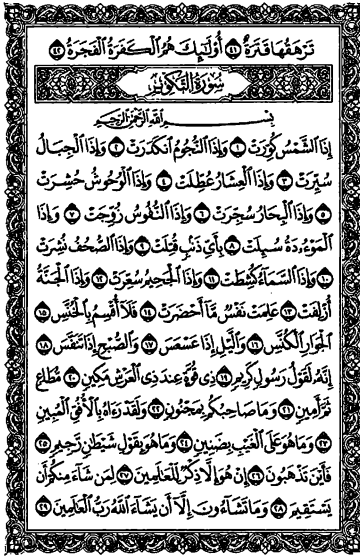 تَرْهَقُهَا قَتَرَةٌ ﴿٤١﴾ أُوْلَٰٓئِكَ هُمُ ٱلْكَفَرَةُ ٱلْفَجَرَةُ ﴿٤٢﴾
سُورَةُ التَّكْوِيرِ
بِسْمِ ٱللَّهِ ٱلرَّحْمَٰنِ ٱلرَّحِيمِ
إِذَا ٱلشَّمْسُ كُوِّرَتْ ﴿١﴾ وَإِذَا ٱلنُّجُومُ ٱنكَدَرَتْ ﴿٢﴾ وَإِذَا ٱلْجِبَالُ
سُيِّرَتْ ﴿٣﴾ وَإِذَا ٱلْعِشَارُ عُطِّلَتْ ﴿٤﴾ وَإِذَا ٱلْوُحُوشُ حُشِرَتْ
﴿٥﴾ وَإِذَا ٱلْبِحَارُ سُجِّرَتْ ﴿٦﴾ وَإِذَا ٱلنُّفُوسُ زُوِّجَتْ ﴿٧﴾ وَإِذَا
ٱلْمَوْءُۥدَةُ سُئِلَتْ ﴿٨﴾ بِأَىِّ ذَنۢبٍ قُتِلَتْ ﴿٩﴾ وَإِذَا ٱلصُّحُفُ نُشِرَتْ
﴿١٠﴾ وَإِذَا ٱلسَّمَآءُ كُشِطَتْ ﴿١١﴾ وَإِذَا ٱلْجَحِيمُ سُعِّرَتْ ﴿١٢﴾ وَإِذَا ٱلْجَنَّةُ
أُزْلِفَتْ ﴿١٣﴾ عَلِمَتْ نَفْسٌ مَّآ أَحْضَرَتْ ﴿١٤﴾ فَلَآ أُقْسِمُ بِٱلْخُنَّسِ ﴿١٥﴾
ٱلْجَوَارِ ٱلْكُنَّسِ ﴿١٦﴾ وَٱلَّيْلِ إِذَا عَسْعَسَ ﴿١٧﴾ وَٱلصُّبْحِ إِذَا تَنَفَّسَ ﴿١٨﴾
إِنَّهُۥ لَقَوْلُ رَسُولٍ كَرِيمٍ ﴿١٩﴾ ذِى قُوَّةٍ عِندَ ذِى ٱلْعَرْشِ مَكِينٍ ﴿٢٠﴾ مُّطَاعٍ
ثَمَّ أَمِينٍ ﴿٢١﴾ وَمَا صَاحِبُكُم بِمَجْنُونٍ ﴿٢٢﴾ وَلَقَدْ رَءَاهُ بِٱلْأُفُقِ ٱلْمُبِينِ
﴿٢٣﴾ وَمَا هُوَ عَلَى ٱلْغَيْبِ بِضَنِينٍ ﴿٢٤﴾ وَمَا هُوَ بِقَوْلِ شَيْطَٰنٍ رَّجِيمٍ ﴿٢٥﴾
فَأَيْنَ تَذْهَبُونَ ﴿٢٦﴾ إِنْ هُوَ إِلَّا ذِكْرٌ لِّلْعَٰلَمِينَ ﴿٢٧﴾ لِمَن شَآءَ مِنكُمْ أَن
يَسْتَقِيمَ ﴿٢٨﴾ وَمَا تَشَآءُونَ إِلَّآ أَن يَشَآءَ ٱللَّهُ رَبُّ ٱلْعَٰلَمِينَ ﴿٢٩﴾